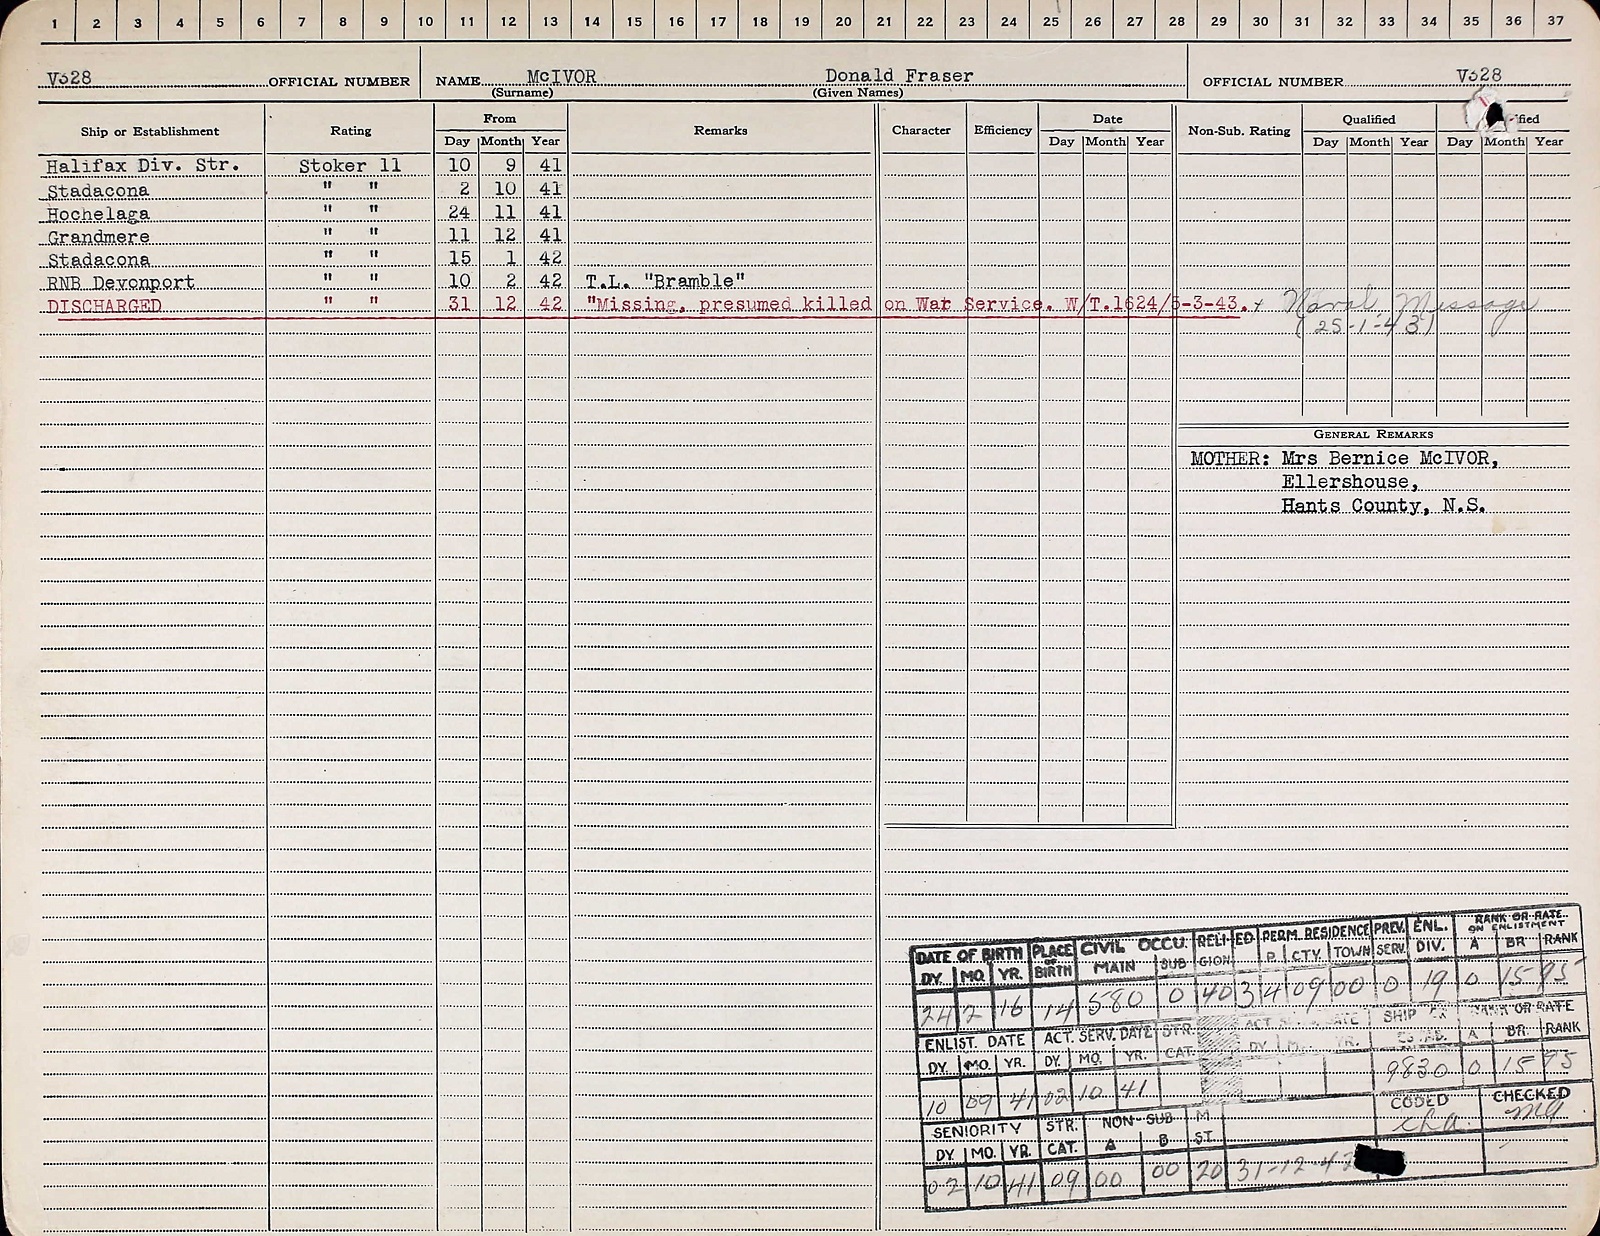 1 2 3 4 5 6 7 8 9 10 11 12 13 14 15 16 17 18 19 20 21 22 23 24 25 26 27 28 29 30 31 32 33 34 35 36 37
V328 OFFICIAL NUMBER NAME McIVOR Donald Fraser OFFICIAL NUMBER V328
(Surname) (Given Names)
Ship or Establishment Rating From Remarks Character Efficiency Date Non-Sub. Rating Qualified
Day Month Year Day Month Year Day Month Year Day Month Year
Halifax Div. Str. Stoker 11 10 9 41
Stadacona " " 2 10 41
Hochelaga " " 24 11 41
Grandmere " " 11 12 41
Stadacona " " 15 1 42
RNB Devonport " " 10 2 42 T.L. "Bramble"
DISCHARGED " " 31 12 42 "Missing, presumed killed on War Service. W/T.1624/5-3-43. + Naval Message
(25-1-43)
GENERAL REMARKS
MOTHER: Mrs Bernice McIVOR,
Ellershouse,
Hants County, N.S.
DATE OF BIRTH PLACE OF BIRTH CIVIL OCCU. RELIGION ED. PERM. RESIDENCE PREV. SERV. ENL. DIV. RANK OR RATE ON ENLISTMENT
DY. MO. YR. MAIN SUB P. CTY. TOWN A BR RANK
24 2 16 14 580 0 40 3 4 09 00 0 19 0 15 95
ENLIST. DATE ACT. SERV. DATE STR. CAT. SHIP RANK OR RATE
DY. MO. YR. DY. MO. YR. DY. YR. A BR. RANK
10 09 41 02 10 41 9830 0 15 95
SENIORITY STR. CAT. NON-SUB M ST. CODED CHECKED
DY. MO. YR. A B
02 10 41 09 00 00 20 31-12-42